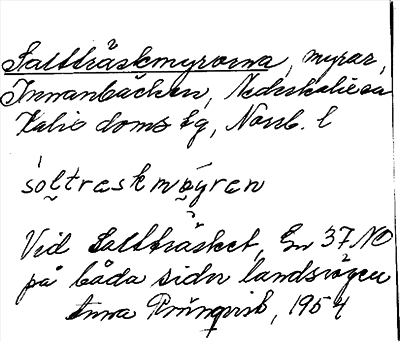 Saltträskmyrorna, myrar,
Innanbäcken, Nederkalix sn
Kalix doms lg, Norrb. l
sòltraskmøyran
Vid Saltträsket, Gn 37 NO
på båda sidor landsvägen
Anna 1954